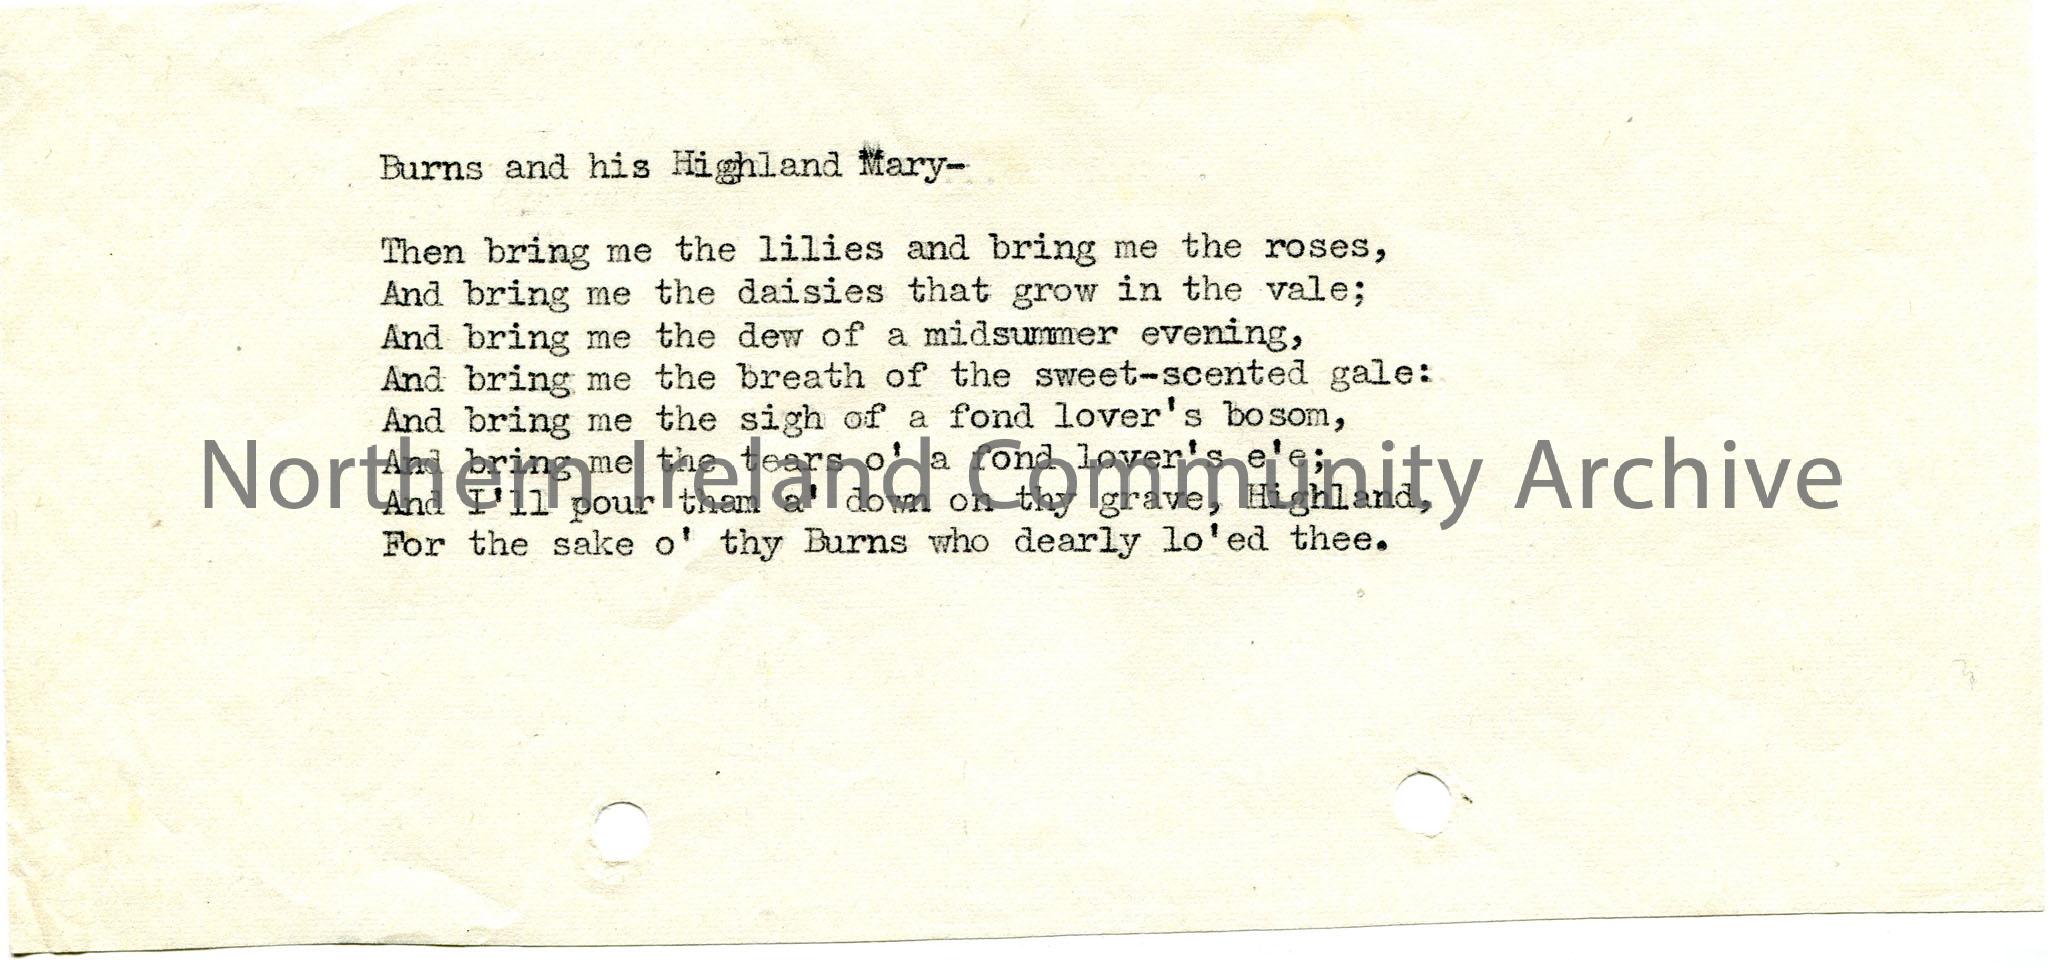 Burns and his Highland Mary-
Then bring me the lilies and bring me the roses,
And bring me the daisies that grow in the vale;
And bring me the dew of a midsummer evening,
And bring me the breath of the sweet-scented gale:
And bring me the sigh of a fond lover's bosom,
And bring me the tears o' a fond lover's e'e;
Northern Ireland Community Archive
And I'll pour tham a' down on thy grave, Highland,
For the sake o' thy Burns who dearly lo'ed thee.